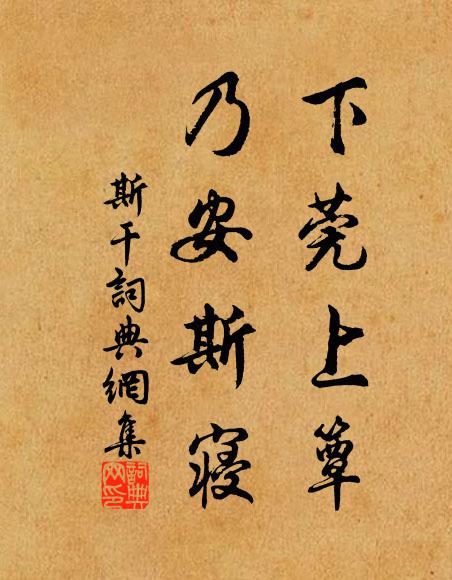 下莞上簟
乃安斯寢
斯干詞典網集
詞典網印